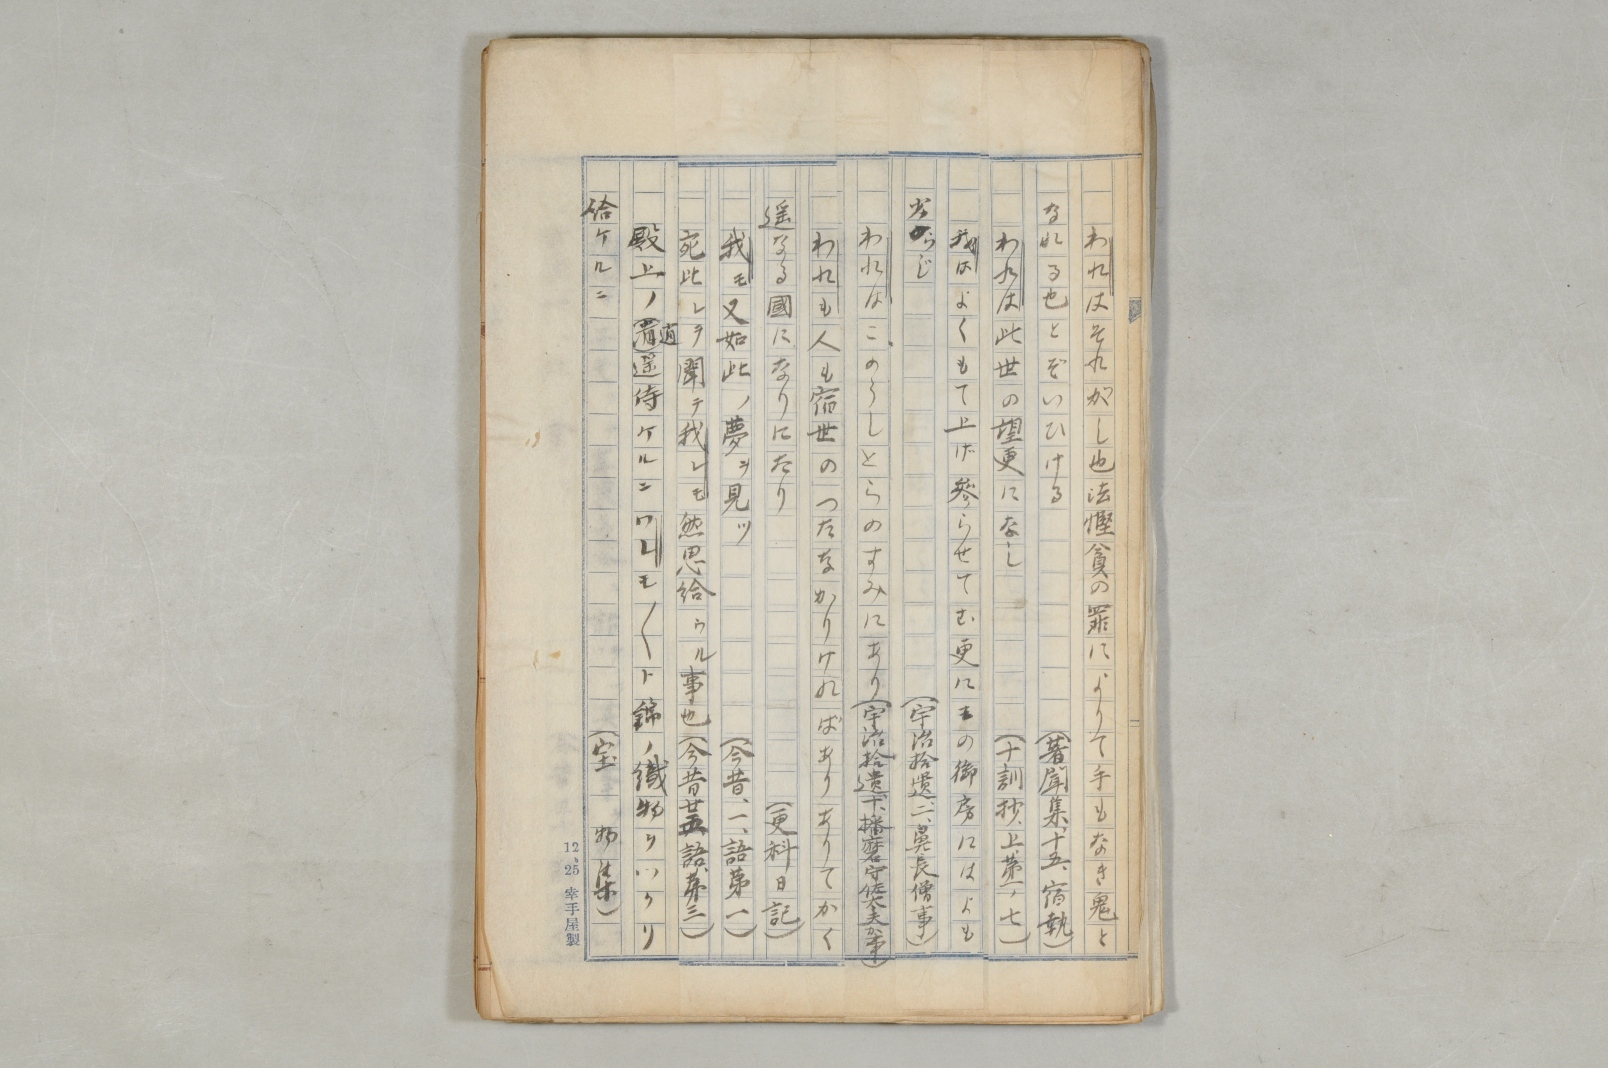 われはそれがし也法慳貪の罪によりて手もなき鬼と
なれる也とぞいひける（著聞集、十五、宿執）
われは此世の望更になし（十訓抄、上、第一ノ七）
我はよくもて上げ参らせてむ更に の御房にはよも
劣らじ（宇治拾遺、二、鼻長僧事）
われはこのうしとらのすみにあり（宇治拾遺、十、播磨守佐大夫が事）
われも人も宿世のつたなかりければありありてかく
遥なる國になりにたり（更科日記）
我モ又如此ノ夢ヲ見ツ（今昔、一、語第一）
死此レヲ聞テ我レモ然思給ウル事也（今昔廿五、語、第三）
殿上ノ逍遥侍ケルニワレモ〱ト錦ノ織物 リ
給ケルニ（宝物集）
12、25 幸手屋製